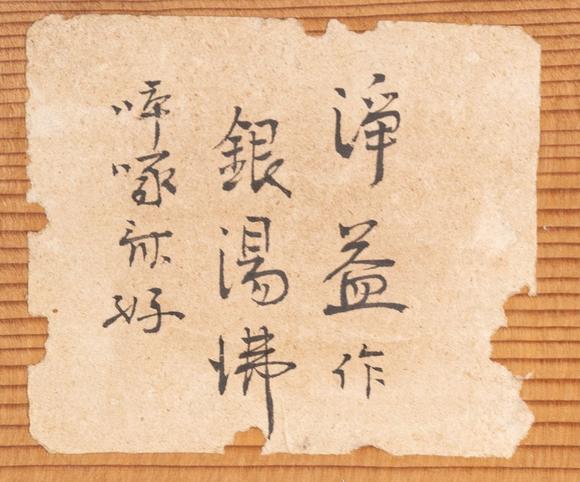 淨益作
銀湯沸
啐啄斎好